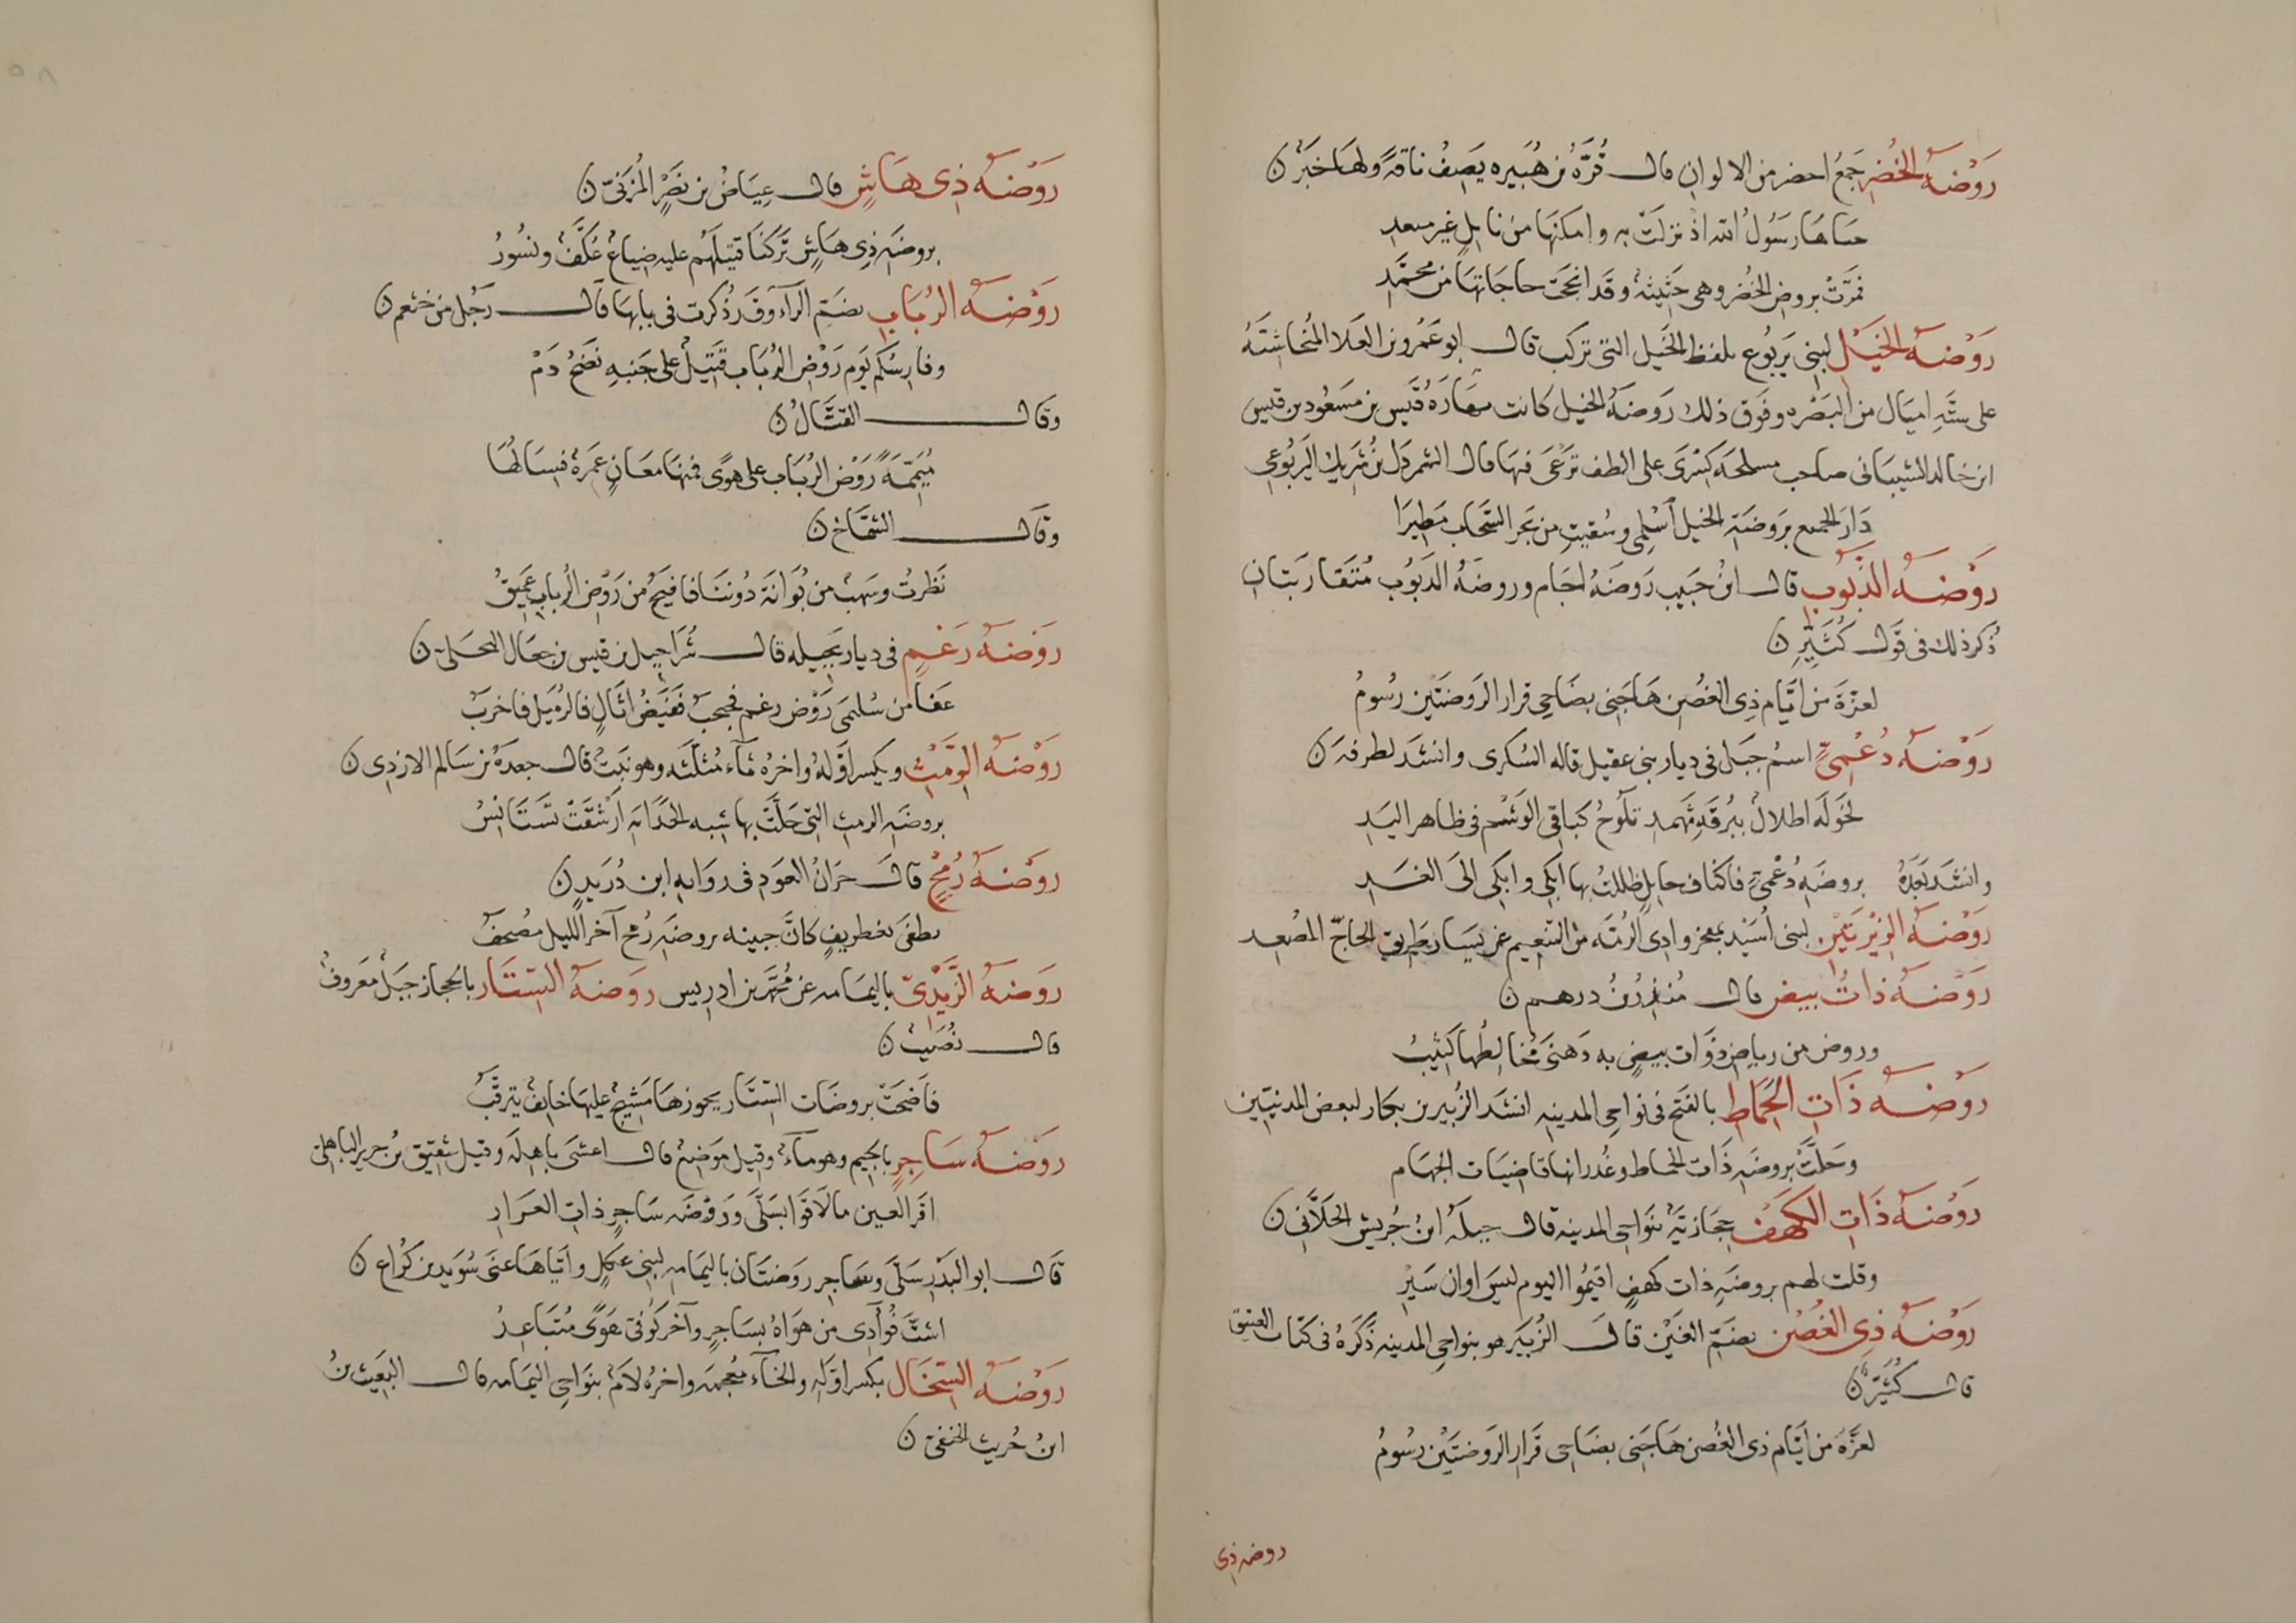 رَوْضَةُ الخُضْرِ جَمعُ اخضر من الالوان قال قُرَّةُ بن هُبَيره يَصِفُ ناقةً ولها خَبَرٌ ن
حباها رَسُولُ الله اذ نزلَتْ به وامكنَها من نايلٍ غير
فمرَّتْ بروض الخُضْر وهى حَثِيثةٌ وقد انجحَتْ حاجاتها من محمَّدِ
رَوْضَةُ الخَيْلِ لبنى يَربُوع بلفظ الخَيل التى تركب قال ابو عَمْرو بن العَلا المُنْجاشتَةُ
على ستَّةِ اميَال من البَصْره وفوَق ذلك رَوضَةُ الخيل كانت مِهَارَةُ قَيْس بن مَسعُود بن قيس
ابن خالد الشيبانى صاحب مسلحَة كِسْرَى على الطف تَرْعَى فيهَا قال الشمردَل بنُ شَرِيك اليَربُوعى
دَارَ الجميع بَروضَةِ الخيل ٱسْلِمى وسُقيتِ من بَحر السَّحَاب مَطِيرَا
رَوْضَةُ الدَّبُوبِ قال ابنُ حَبيب رَوضَةُ اجَام وروضَةُ الدَبُوب مُتَقَاربَتان
ذُكر ذلك فى قَول كُثَيِّرٍ ن
لعزَّةَ من أيَّام ذِى الغُصْن هَاجَنِى بضَاحِى قرار الروضَتَيْن رسُومُ
رَوْضَةُ دُعْمِىٍّ اسمُ جَبَل فى ديار بنى عقيل قاله السُكرى وانشَد لطرفَة ن
لخَولَه اطلالٌ ببُرقَةِ ثَهمدِ تلُوحُ كبَاقِى الوَشْم فى ظاهر اليَدِ
وانشَد بَعَدَهُ بروضَةِ دُعْمِىٍّ فاكناف حايلٍ ظللتُ بها ابْكِى وابْكِى الىَ الغَدِ
رَوْضَةُ لبنى أُسَيْد بمفجر وادِى الرُمَّه من التنعيم عن يَسَار طَرِيق الحاجّ المُصْعد
رَوْضَةُ ذاتُ بيض قال مُنذِرُ بنُ درهم ن
وروض من رياض ذوَات بيضٍ به دَهنَى مُخالِطُها كَثِيبُ
رَوْضَةُ ذَاتِ الحَمَاطِ بالفَتح فى نواحِى المدينه انشدَ الزُّبير بن بكار لبعض المدنيّين
وحَلَّتْ بروضَةِ ذَات الحَماط وغُدرانها قاضيَات الجهَام
رَوْضَةُ ذَاتِ الكَهْفِ حِجَازيَّةٌ بنَواحِى المدينه قال جبلَةُ ابنُ جُريس الحَلَّانى ن
وقلت لهم بروضَةِ ذات كهفٍ اقيمُوا اليوم ليسَ اوان سَيْرِ
رَوْضَةُ ذِى الغُصْنِ بضَمّ الغَيْن قالَ الزُبَير هو بنواحِى المدينه ذكَرَهُ فى كتاب العقيق
قال كُثَيِّرٌ ن
لعزَّةَ من أيَّام ذى الغُصن هَاجَنى بضَاحِى قَرار الرَوضتَيْن رسُومُ
روضه ذى
رَوْضَةُ ذِى هَاشٍ قال عِيَاضُ بن نَصْرٍ المُزَنِىّ ن
بروضَةِ ذِى هَاشٍ تَركنَا قتيلَهُم عليه ضِباعٌ عُكَّفٌ ونُسُورُ
رَوْضَةُ الرُبَابِ بضَمِّ الرَّآء وقَد ذُكرت فى بابهَا قال رَجُل من خثعم ن
وفارسُكم يَوم رَوْض الرُبَاب قتيلٌ على جَنبه نَضْحُ دَمْ
وقال القتَّالُ ن
مُيَمّمَةً رَوْض الرُبَاب على هوًى فمنهَا مغَانٍ غَمرَةٌ فسِيَالُهَا
وقال الشمَّاخ ن
نَظرتُ وسَهبٌ من بُوَانَة دُونَنَا فافيَحُ من رَوْض الرُباب عَمِيقُ
رَوْضَةُ رَغْمٍ فى ديار بَجِيله قال شُرَاحيل بن قيس بن جعال البجلى ن
عَفَا من سُليمَى رَوْض رغم فجبجبٌ فَفَيْضُ اثَالٍ فالرُمَيل فاخربُ
رَوْضَةُ الرِّمْثِ ويكسر اوَّلهُ واخرُه ثآء مُثلَّثه وهو نبتٌ قال جعدَةُ بن سَالم الازدى ن
بروضَةِ الرمث التِى حَلَّتْ بها شبه الجَدَاية ارشقَتْ تَستَانِسُ
رَوْضَةُ رُمْحٍ قال جِرَانُ العَود فى روَايه ابن دُرَيدٍ ن
بغطريفٍ كانَّ جبينه بروضَة رُمح آخرَ الليل مُصْحَفُ
رَوْضَةُ الزَّيْدِىّ باليمَامه عن مُحَمَّد بن ادريس رَوْضَةُ السِّتَارِ بالحجاز جَبَلٌ مَعرُوفٌ
قال نُصَيبٌ ن
فاضْحَتْ بروضَات السِّتَار يحُوزهَا مُشِيحٌ عليهَا خايفٌ يترقَّبُ
رَوْضَةُ سَاجِرٍ بالجيم وهو مآءٌ وقيل موَضِعٌ قال اعشى باهِلَة وقيل شقِيق بنُ جرير الباهلى
اقر العين ما لاقَوا بسَلَّى ورَوْضَه سَاجرٍ ذات العَرَارِ
قال ابو البَدر سَلَّى وسَاجر روضَتان باليمَامه لبنى عُكلٍ وأيّاهَا عنَى سُوَيد بن كُرَاع ن
اشتَّ فُوآدِى من هوَاهُ بسَاجرٍ وآخر كُوفىّ هَوًى مُتبَاعِدُ
رَوْضَةُ السِّخَال بكسر اوَّله والخآء مُعجمَه واخرُه لامٌ بنوَاحِى اليَمَامه قال البَعِيث بنُ
ابنُ حُريث الحنفىّ ن